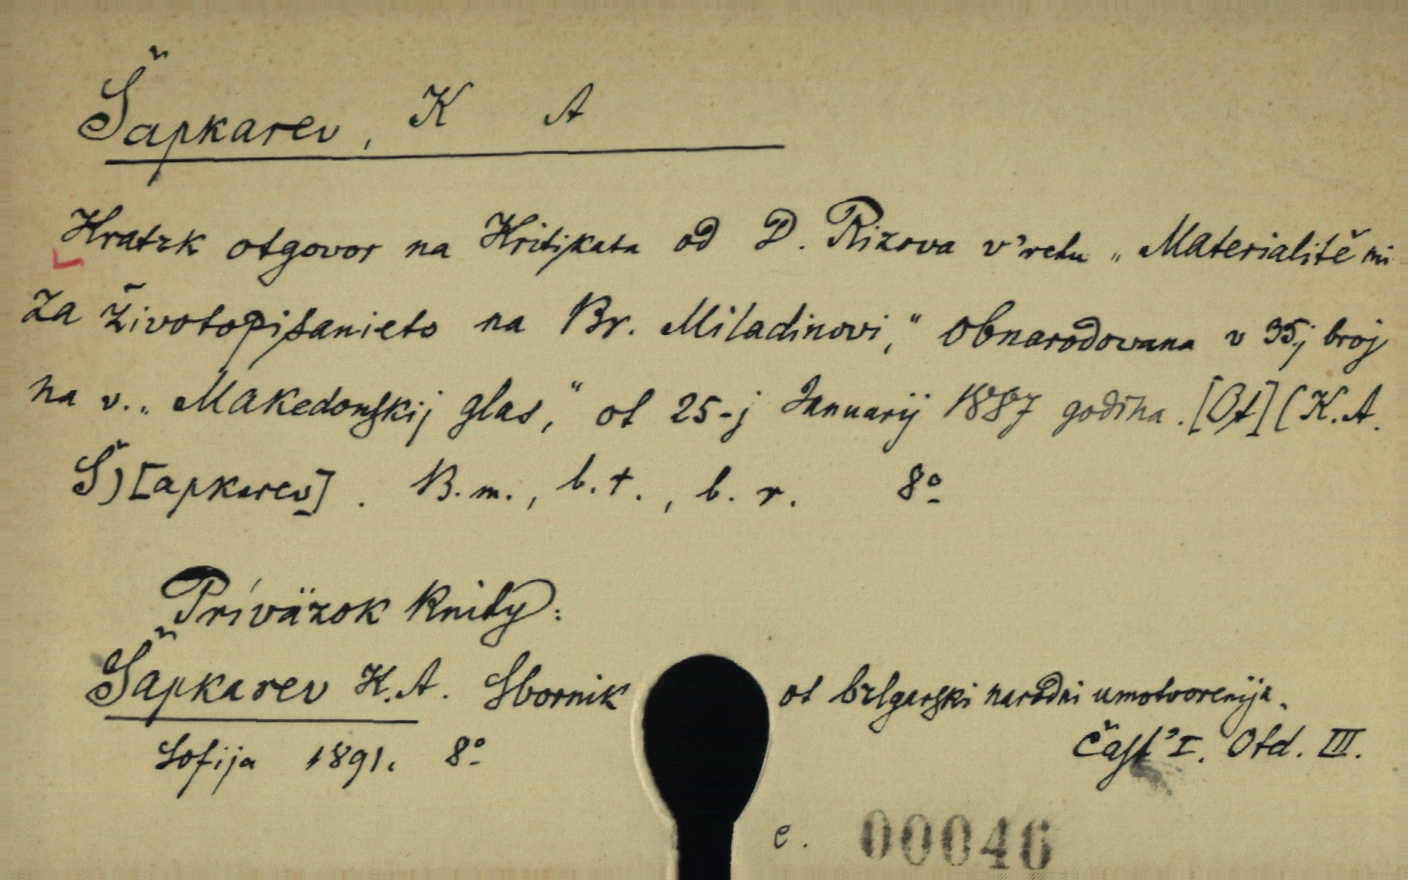 Šapkarev, K A
Kratzk otgovor na Kritikata od D. Rizova v'rchu „Materialitě mi
za životopisanieto na Br. Miladinovi," obnarodowana v 35j broj
na v. „Makedonskij glas," ot 25-j Januarij 1887 godina. [Ot] (K. A.
Š) [apkarev]. B. m., b. t., b. r. 8º
Príväzok knihy:
Šapkarev K. A. Sbornik ot bzlgarski narodni umotvorenija.
Sofija 1891. 8º Čast' I. Otd. III.
c. 00046